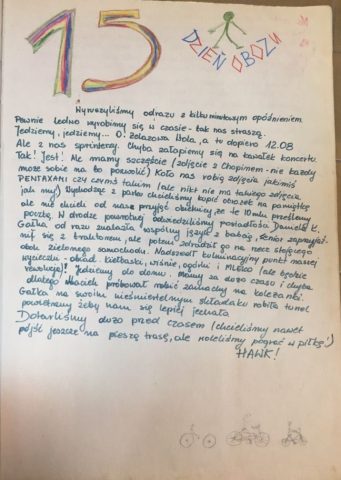 15 DZIEŃ OBOZU
Wyruszyliśmy odrazu z kilkuminutowym opóźnieniem.
Pewnie ledwo wyrobimy się w czasie - tak nas straszą.
Jedziemy, jedziemy... O! Żelazowa Wola, a to dopiero 12.08
Ale z nas sprinterzy. Chyba załapiemy się na kawałek koncertu.
Tak! Jest! Ale mamy szczęście (zdjęcie z Chopinem - nie każdy
może sobie na to pozwolić) Koło nas robią zdjęcia jakimiś
PENTAXAMI czy czymś takim (ale nikt nie ma takiego zdjęcia
jak my) Wychodząc z parku chcieliśmy kupić obrazek na pamiątkę
ale nie chcieli od nas przyjąć obietnicy, że te 10 mln prześlemy
pocztą. W drodze powrotnej odwiedziliśmy posiadłości Danielk K.
Gałka od razu znalazła wspólny język z babcią, Senior zaprzyjaź-
nił się z traktorem, ale potem zdradził go na rzecz stojącego
obok zielonego samochodu. Nadszedł kulminacyjny punkt naszej
wycieczki - obiad - kiełbaski, wiśnie, ogórki i MLEKO (ale będzie
rewolucja)! Jedziemy do domu. Mamy za dużo czasu i chyba
dlatego Maciek próbował robić zamachy na koleżanki.
Gałka na swoim nieśmiertelnym składaku robiła tunel
powietrzny żeby nam się lepiej jechało
Dotarliśmy dużo przed czasem (chcieliśmy nawet
pójść jeszcze na pieszą trasę, ale woleliśmy pograć w piłkę!)
HAWK!